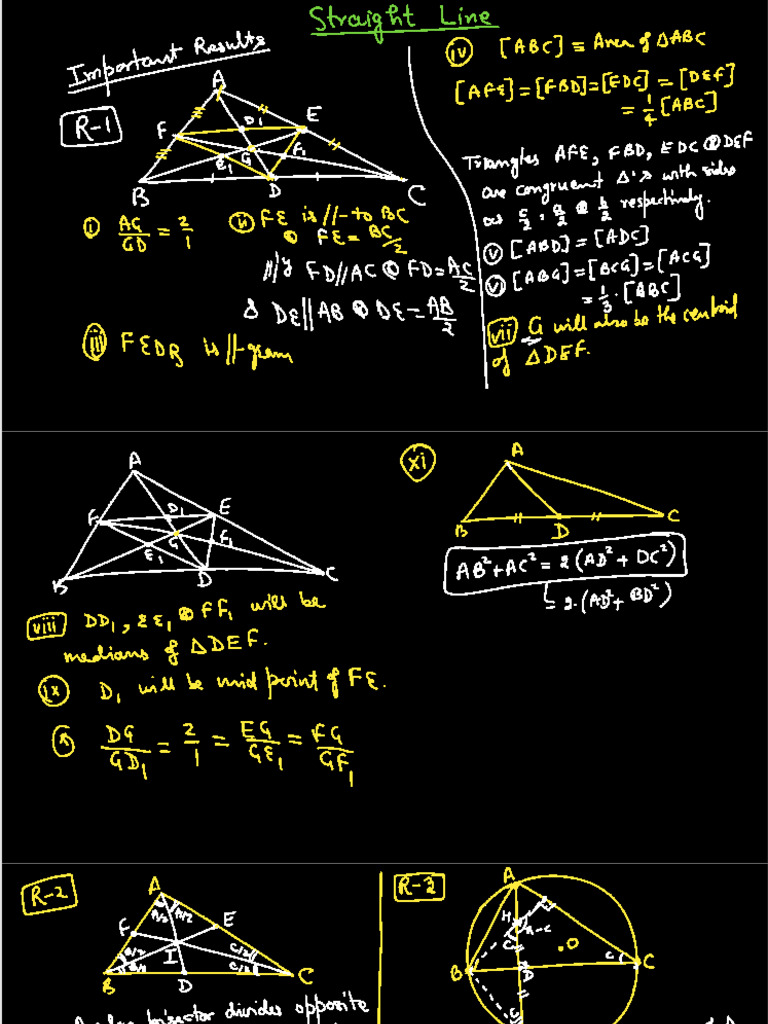 Straight Line
Important Results
R-1
A
F
D1
E
E1
G
F1
B
D
C
(i) AG/GD = 2/1
(ii) FE is //- to BC
& FE = BC/2
|||ly FD//AC & FD = AC/2
& DE//AB & DE = AB/2
(iii) FEDB is //-gram
(iv) [ABC] = Area of ΔABC
[AFE] = [FBD] = [EDC] = [DEF]
= 1/4 [ABC]
Triangles AFE, FBD, EDC & DEF
are congruent Δ's with sides
as c/2, a/2 & b/2 respectively.
(v) [ABD] = [ADC]
(v) [ABG] = [BCG] = [ACG]
= 1/3 . [ABC]
(vii) G will also be the centroid
of ΔDEF.
A
F
D1
E
E1
G
F1
B
D
C
(viii) DD1, EE1 & FF1 will be
medians of ΔDEF.
(ix) D1 will be mid point of FE.
(x) DG/GD1 = 2/1 = EG/GE1 = FG/GF1
(xi)
A
B
D
C
AB² + AC² = 2(AD² + DC²)
= 2.(AD² + BD²)
R-2
A
A/2 A/2
F
E
I
B/2
B/2
C/2
C/2
B
D
C
Angle bisector divides opposite
R-3
A
H
C
π-C
O
B
D
C
C